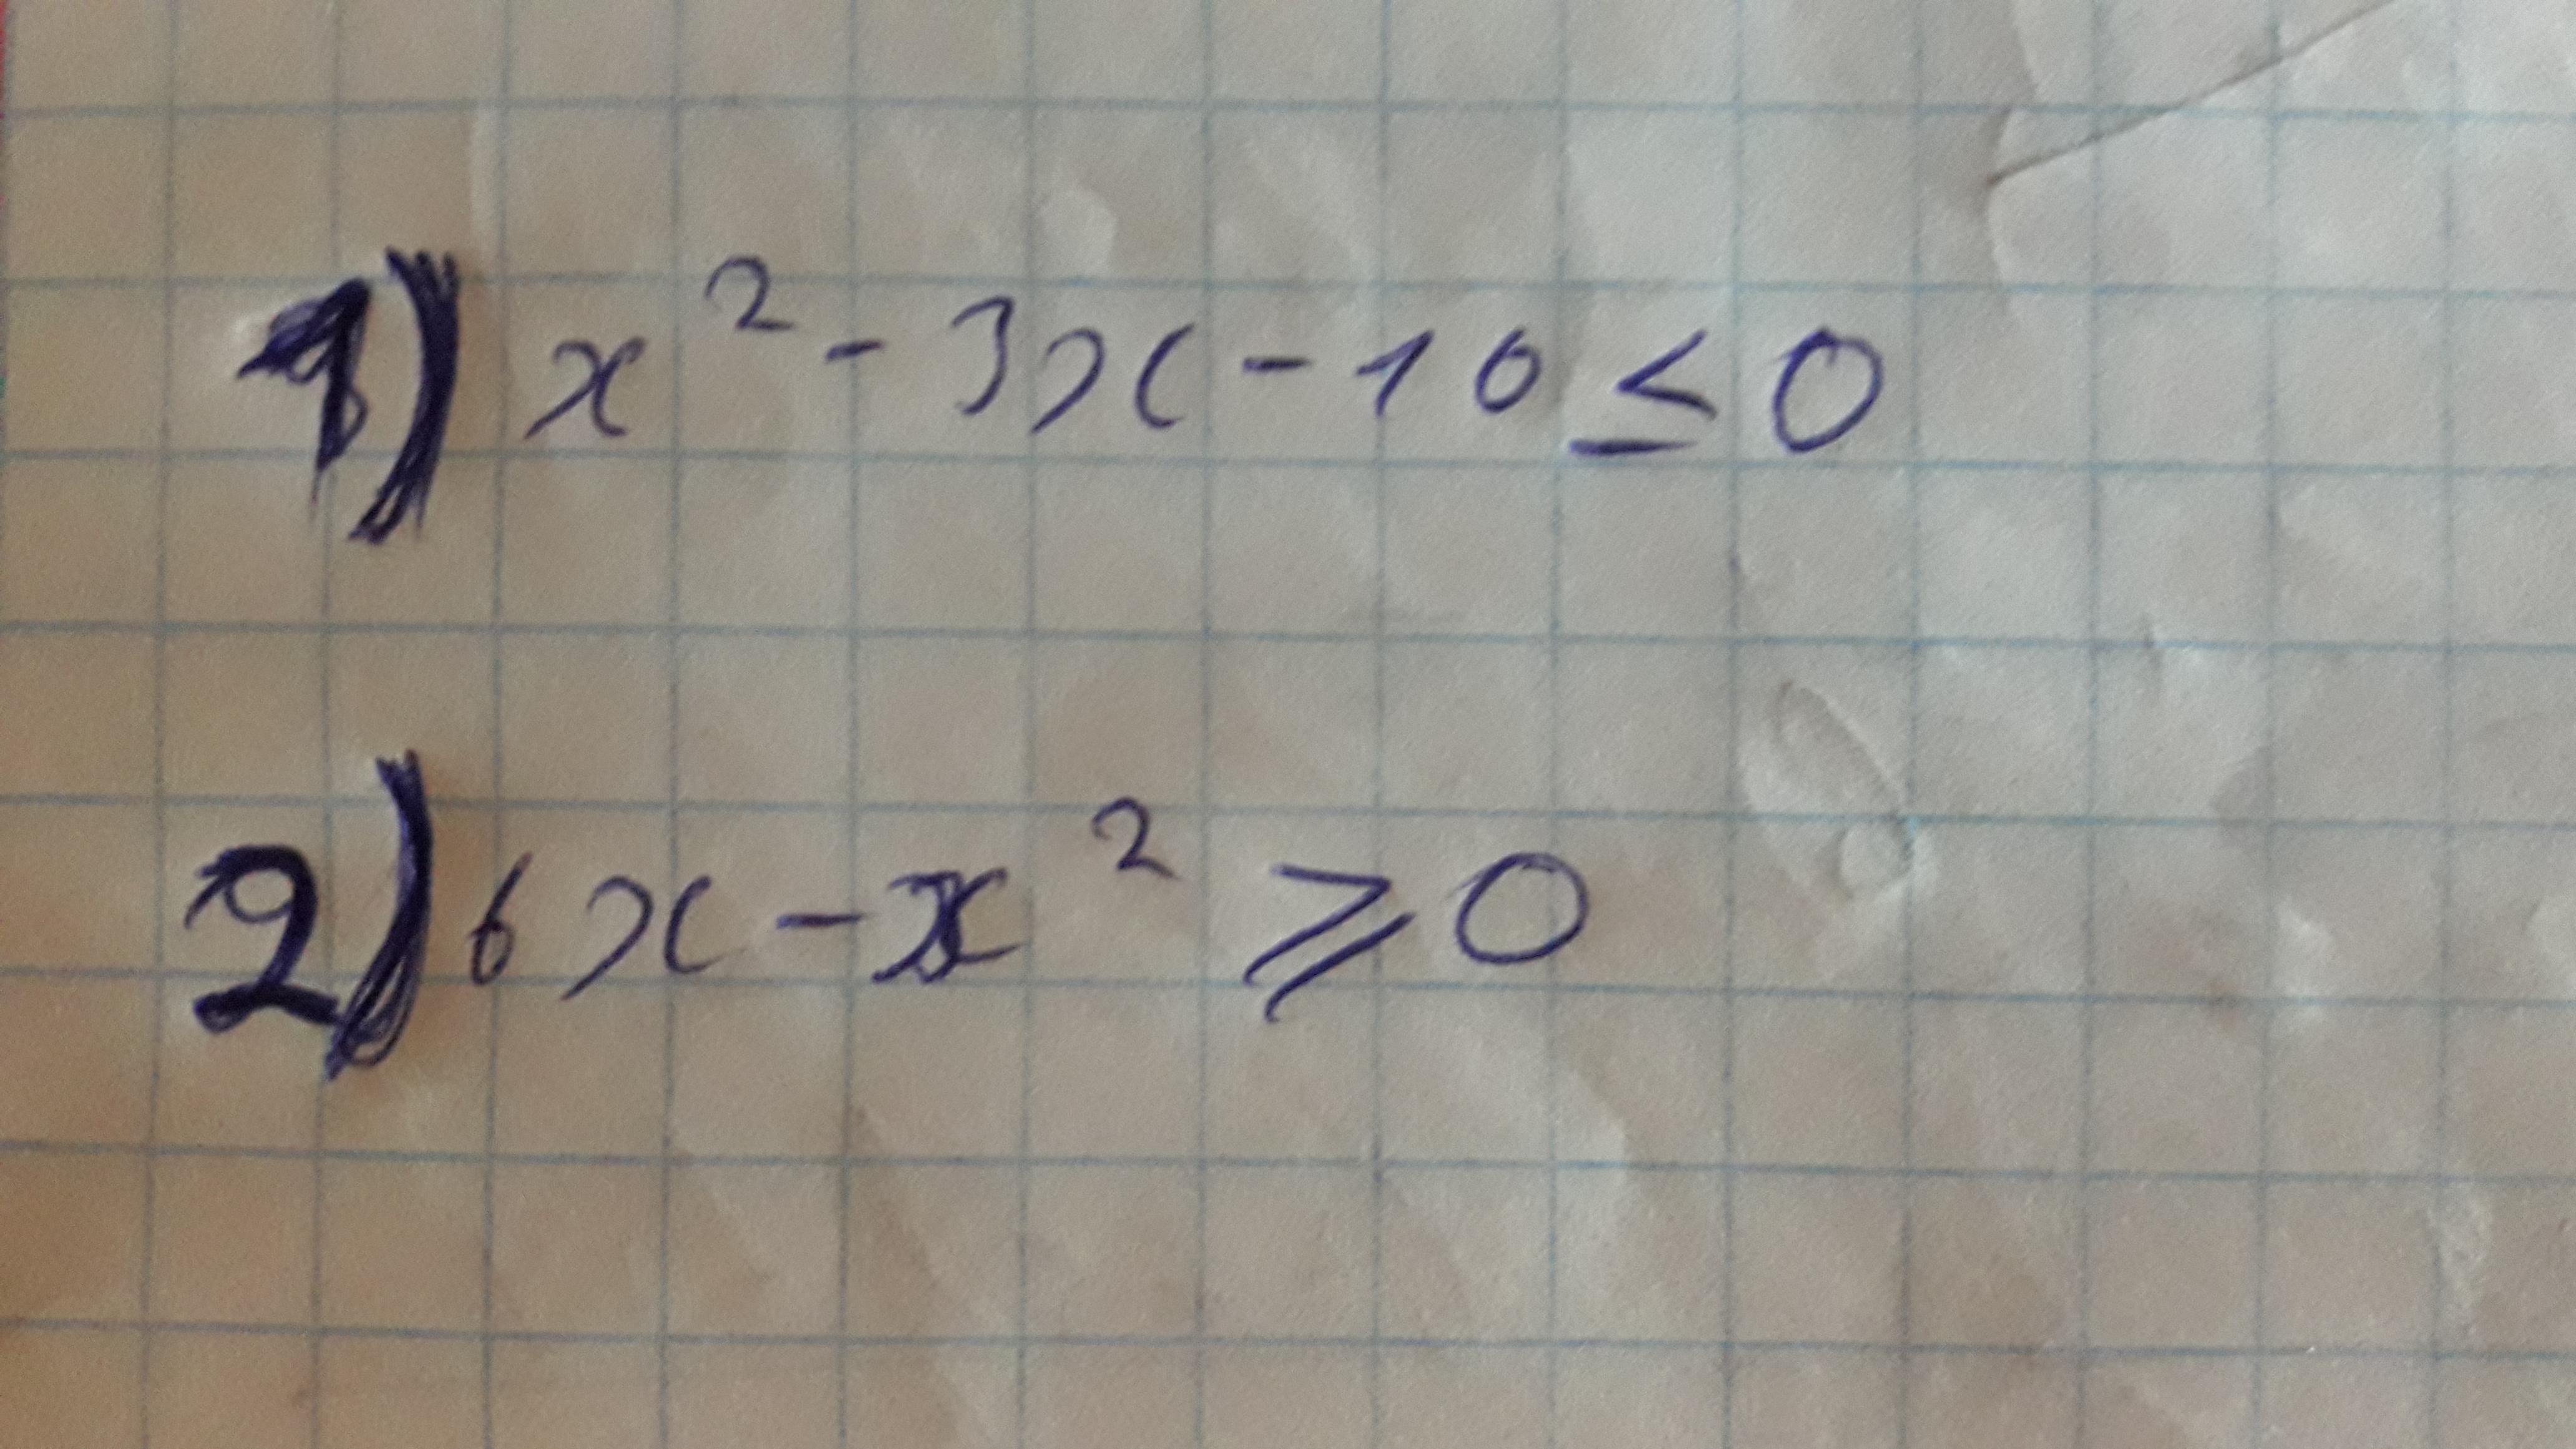 1) x² - 3x - 10 ≤ 0
2) 6x - x² ⩾ 0